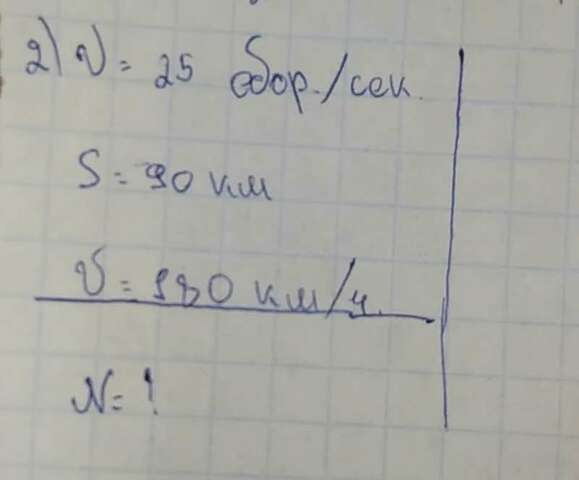 2) ν = 25 обор./сек.
S = 90 км
v = 180 км/ч.
N = !